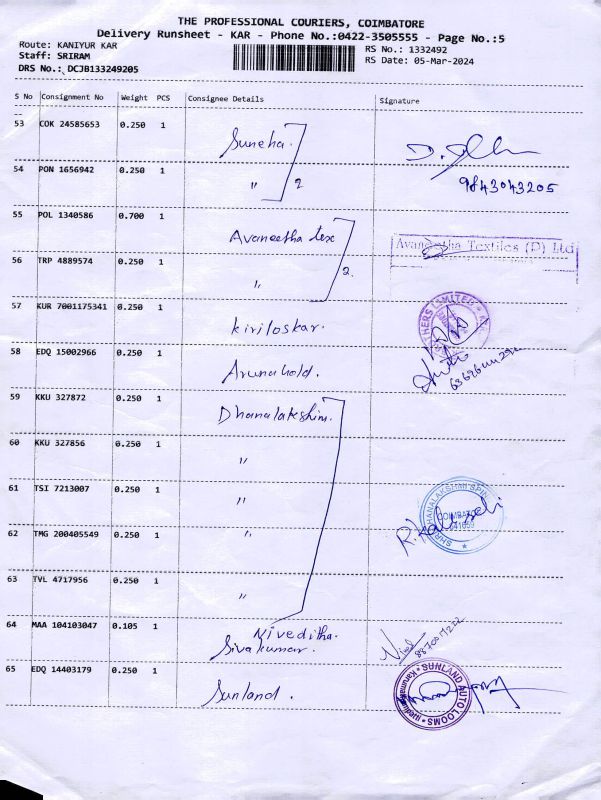 THE PROFESSIONAL COURIERS, COIMBATORE
Delivery Runsheet - KAR - Phone No.:0422-3505555 - Page No.:5
Route: KANIYUR KAR
Staff: SRIRAM
DRS No.: DCJB133249205
RS No.: 1332492
RS Date: 05-Mar-2024
S No Consignment No Weight PCS Consignee Details Signature
53 COK 24585653 0.250 1 Suneha.
54 PON 1656942 0.250 1 " 2 9843043205
55 POL 1340586 0.700 1 Avaneetha tex Avaneetha Textiles (P) Ltd
56 TRP 4889574 0.250 1 " 2
57 KUR 7001175341 0.250 1 kiriloskar.
58 EDQ 15002966 0.250 1 Arunahold.
59 KKU 327872 0.250 1 Dhanalakshim.
60 KKU 327856 0.250 1 "
61 TSI 7213007 0.250 1 "
62 TMG 200405549 0.250 1 " COIMBATORE
63 TVL 4717956 0.250 1 "
64 MAA 104103047 0.105 1 Niveditha.
Sivakumar.
65 EDQ 14403179 0.250 1 Sunland. SUNLAND AUTO LOOMS